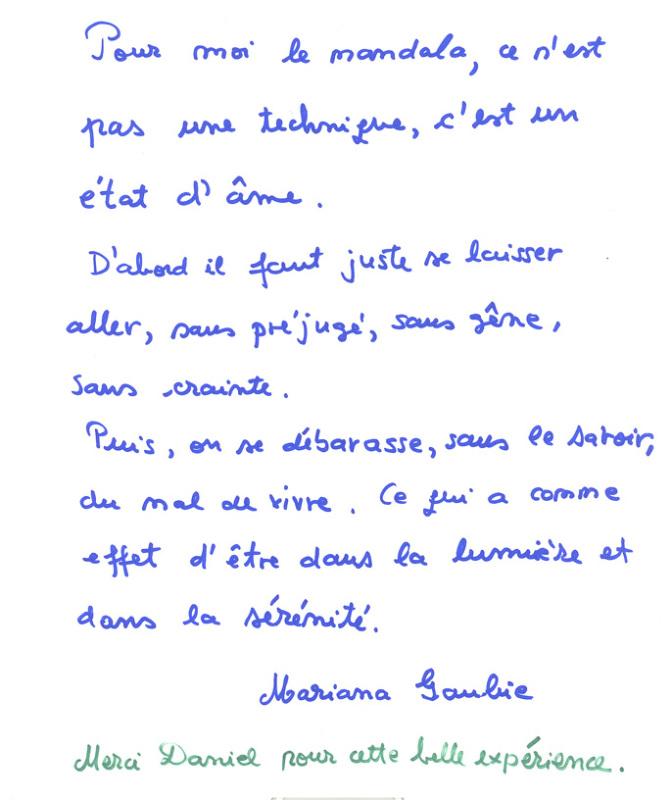 Pour moi le mandala, ce n'est
pas une technique, c'est un
état d'âme.
D'abord il faut juste se laisser
aller, sans préjugé, sans gêne,
sans crainte.
Puis, on se débarasse, sans le savoir,
du mal de vivre. Ce qui a comme
effet d'être dans la lumière et
dans la sérénité.
Mariana
Merci Daniel pour cette belle expérience.